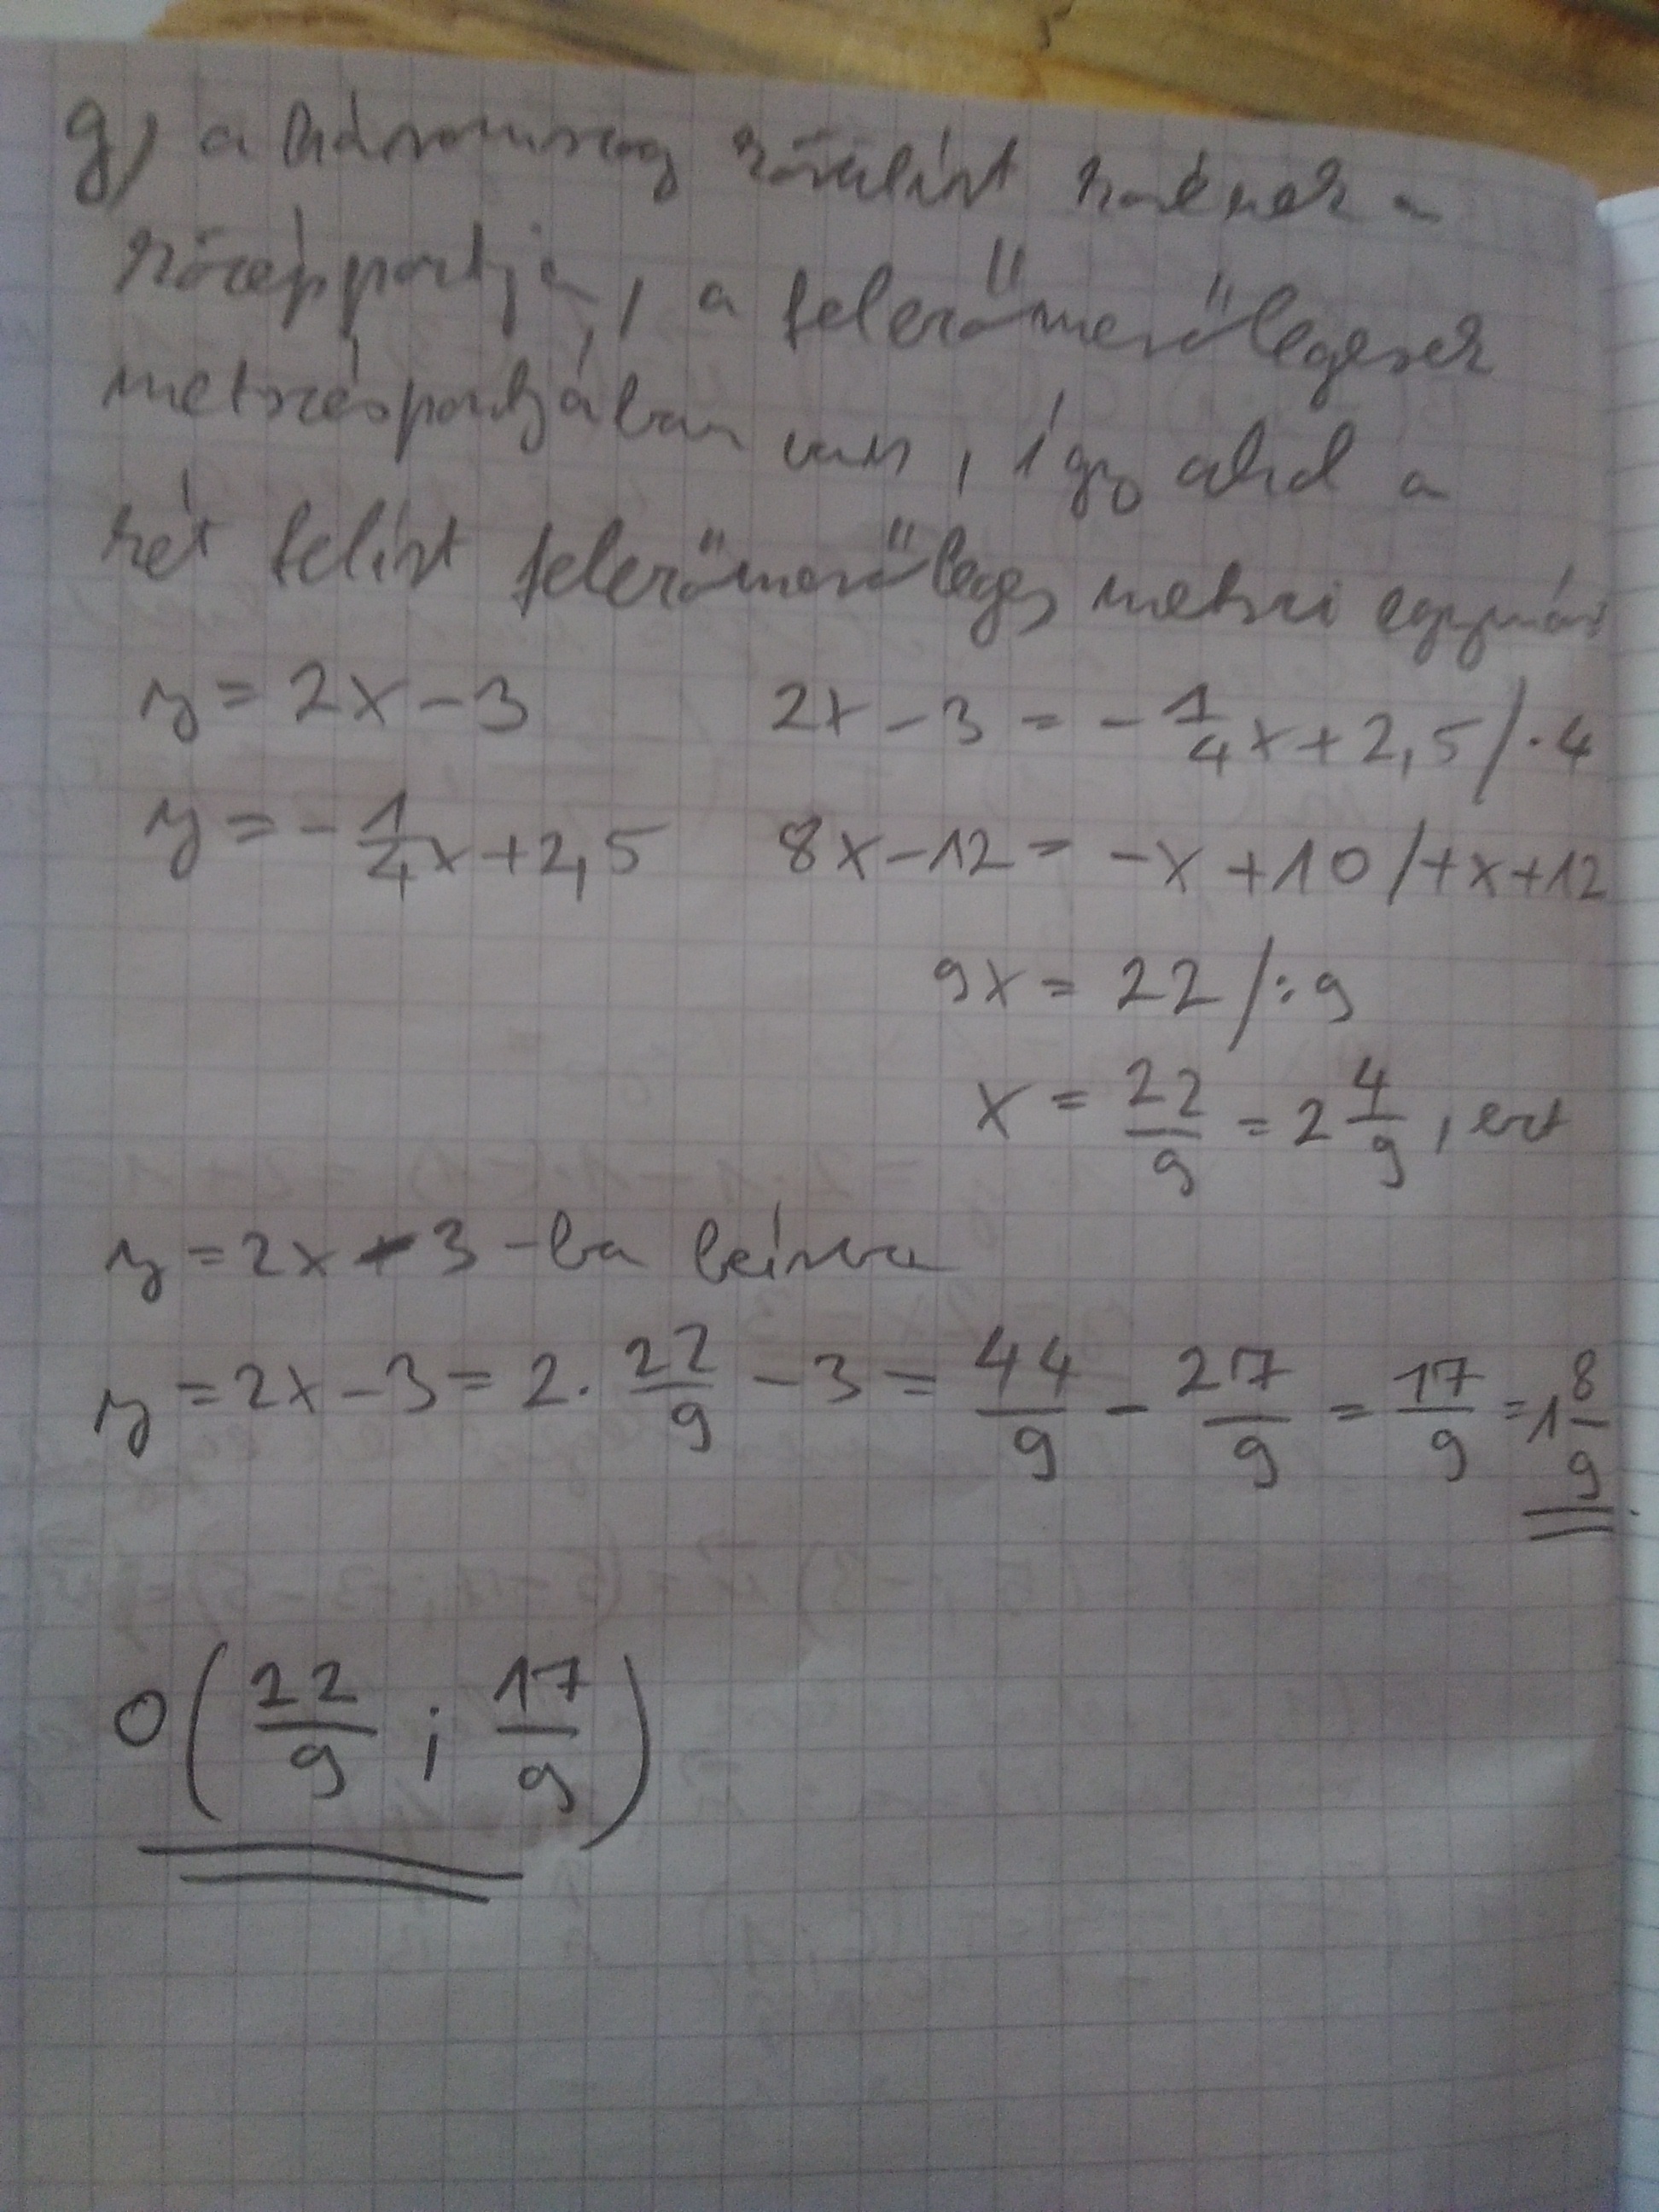 g) a háromszög köréírt körének a
középpontja, a felezőmerőlegesek
metszéspontjában van, így ahol a
két felírt felezőmerőleges metszi egymás
y = 2x - 3 2x - 3 = - 1/4 x + 2,5 / · 4
y = - 1/4 x + 2,5 8x - 12 = -x + 10 / +x + 12
9x = 22 / : 9
x = 22/9 = 2 4/9 , ezt
y = 2x - 3 -ba beírva
y = 2x - 3 = 2 · 22/9 - 3 = 44/9 - 27/9 = 17/9 = 1 8/9
O ( 22/9 ; 17/9 )